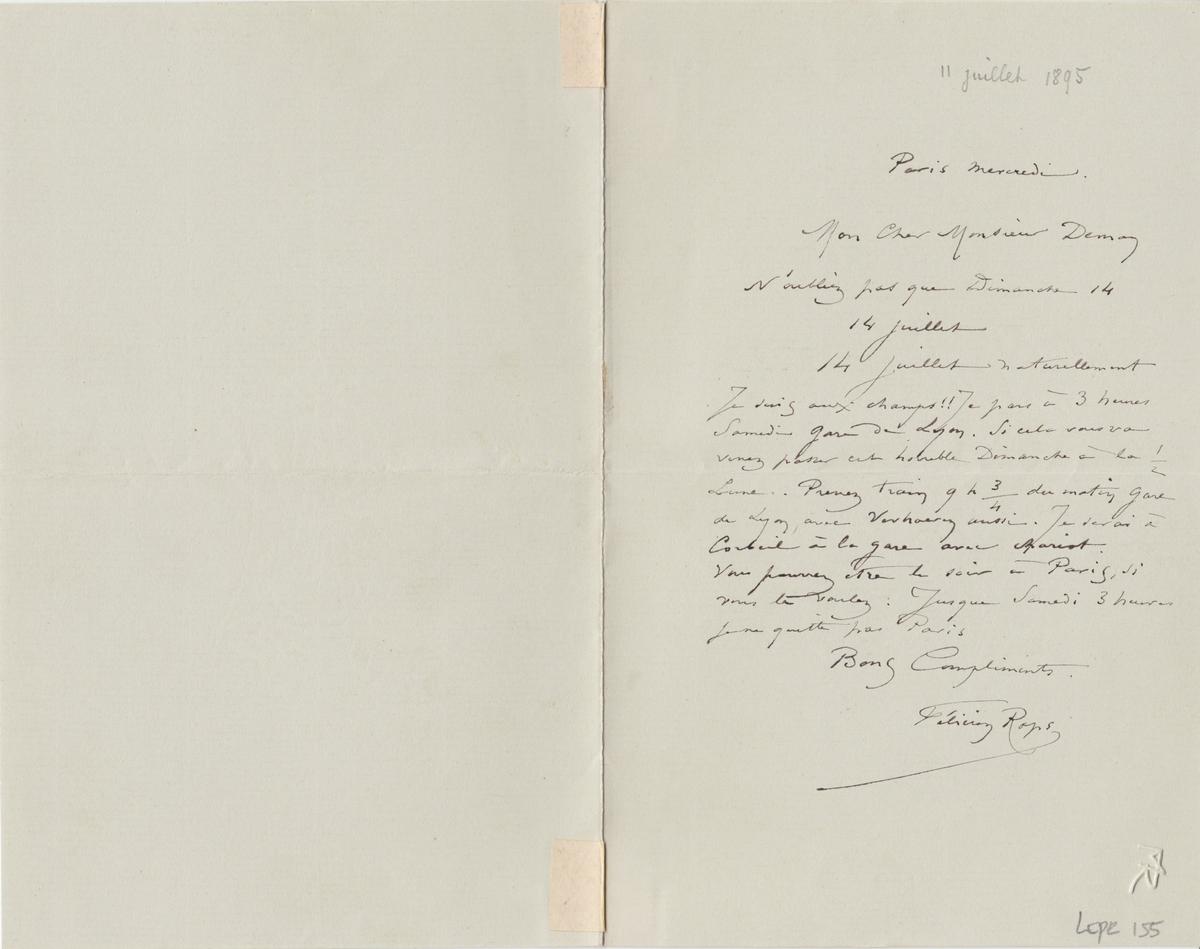 11 juillet 1895
Paris mercredi.
Mon Cher Monsieur Deman
N'oubliez pas que Dimanche 14
14 juillet
14 juillet naturellement
Je suis aux champs!! Je pars à 3 heures
Samedi gare de Lyon. Si cela vous va
venez passer cet horrible Dimanche à la 1/2
Lune. Prenez train 9 h 3/4 du matin Gare
de Lyon, avec Verhaeren aussi. Je serai à
Corbeil à la gare avec
Vous pouvez être le soir à Paris, si
vous le voulez : Jusque Samedi 3 heures
je ne quitte pas Paris
Bons Compliments.
Félicien Rops
LEpr 155